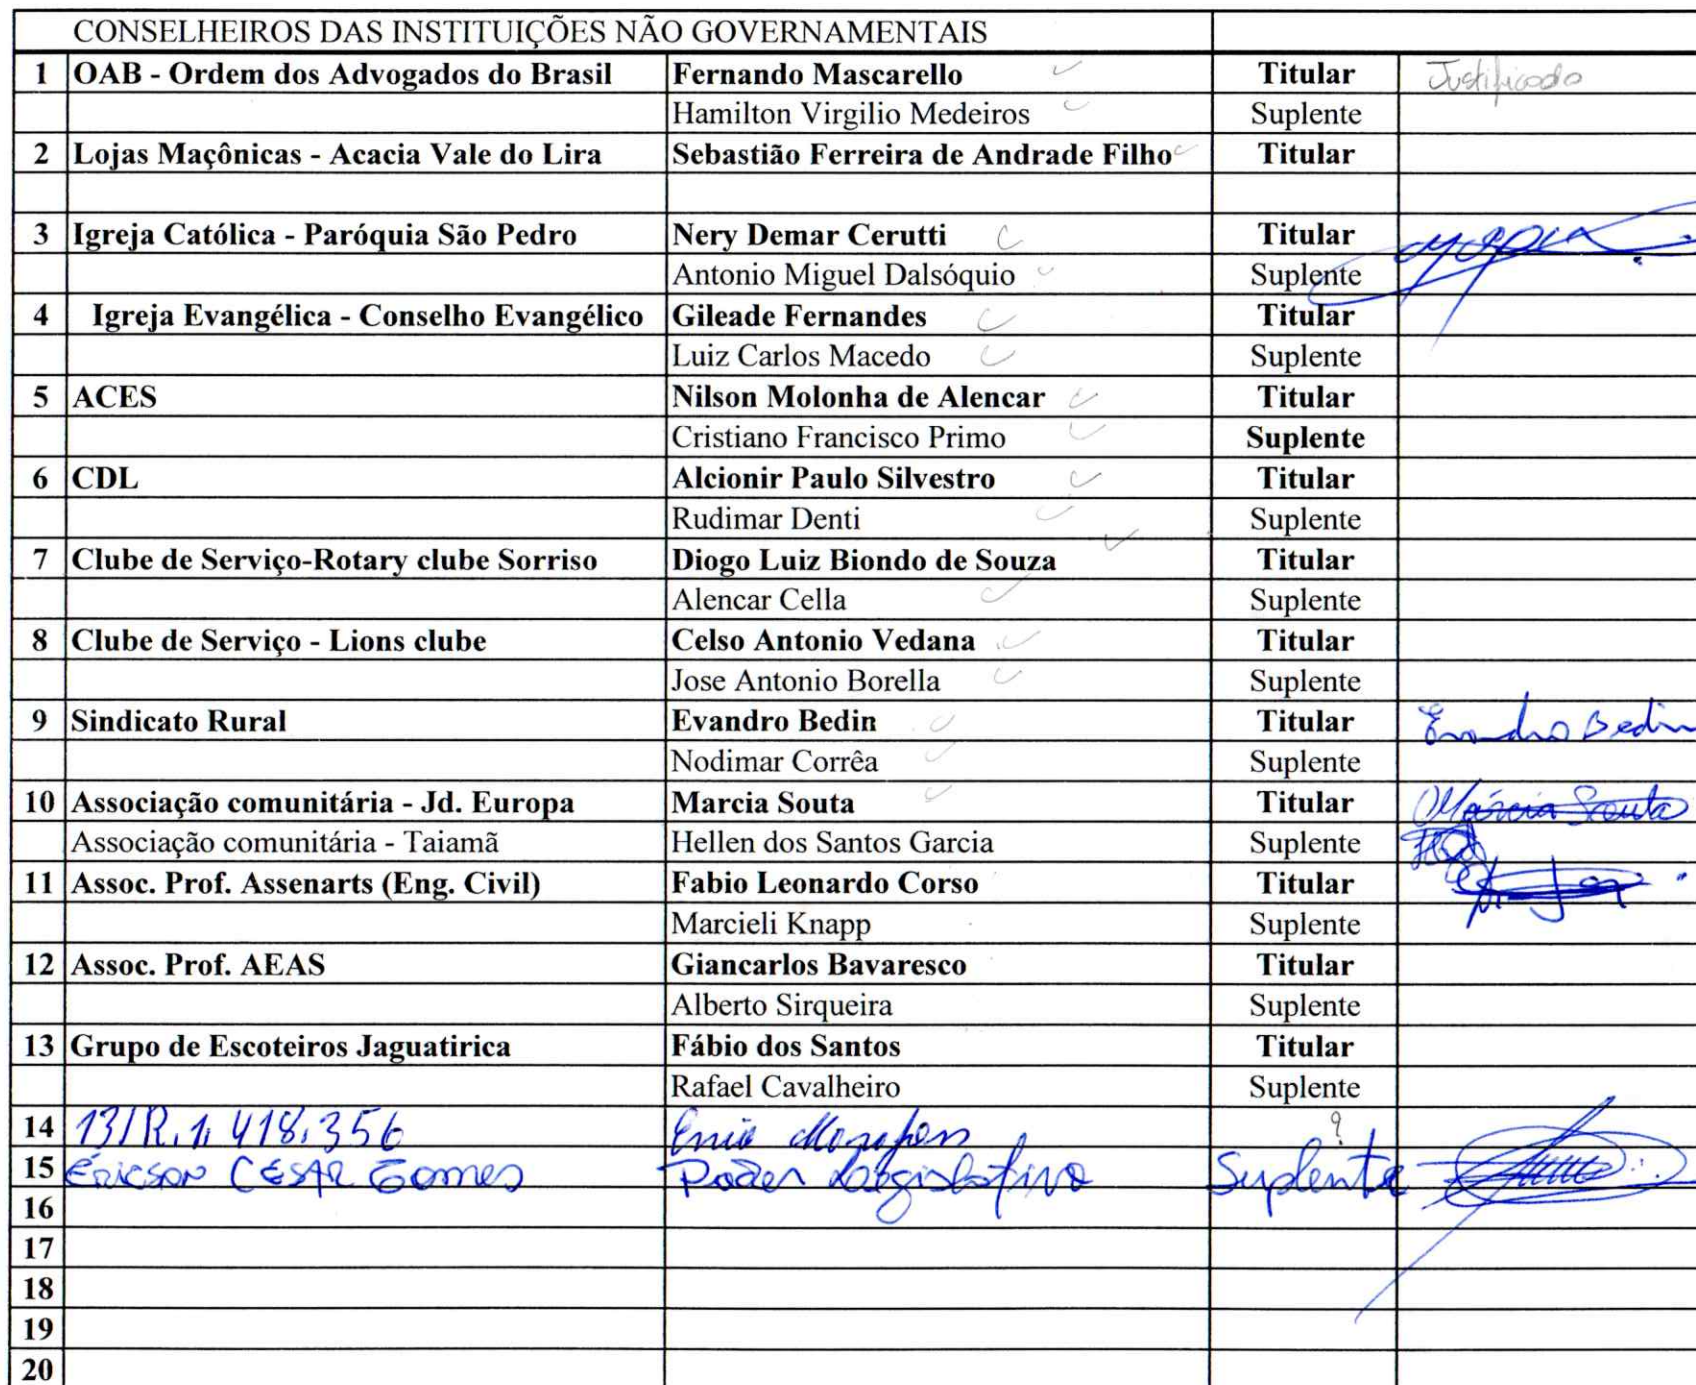 CONSELHEIROS DAS INSTITUIÇÕES NÃO GOVERNAMENTAIS
1 OAB - Ordem dos Advogados do Brasil Fernando Mascarello Titular Justificado
Hamilton Virgilio Medeiros Suplente
2 Lojas Maçônicas - Acacia Vale do Lira Sebastião Ferreira de Andrade Filho Titular
3 Igreja Católica - Paróquia São Pedro Nery Demar Cerutti Titular
Antonio Miguel Dalsóquio Suplente
4 Igreja Evangélica - Conselho Evangélico Gileade Fernandes Titular
Luiz Carlos Macedo Suplente
5 ACES Nilson Molonha de Alencar Titular
Cristiano Francisco Primo Suplente
6 CDL Alcionir Paulo Silvestro Titular
Rudimar Denti Suplente
7 Clube de Serviço-Rotary clube Sorriso Diogo Luiz Biondo de Souza Titular
Alencar Cella Suplente
8 Clube de Serviço - Lions clube Celso Antonio Vedana Titular
Jose Antonio Borella Suplente
9 Sindicato Rural Evandro Bedin Titular Evandro Bedin
Nodimar Corrêa Suplente
10 Associação comunitária - Jd. Europa Marcia Souta Titular Márcia Souta
Associação comunitária - Taiamã Hellen dos Santos Garcia Suplente
11 Assoc. Prof. Assenarts (Eng. Civil) Fabio Leonardo Corso Titular
Marcieli Knapp Suplente
12 Assoc. Prof. AEAS Giancarlos Bavaresco Titular
Alberto Sirqueira Suplente
13 Grupo de Escoteiros Jaguatirica Fábio dos Santos Titular
Rafael Cavalheiro Suplente
14 13/R.1.418.356 Enio ?
15 Ericson César Gomes Poder Legislativo Suplente
16
17
18
19
20